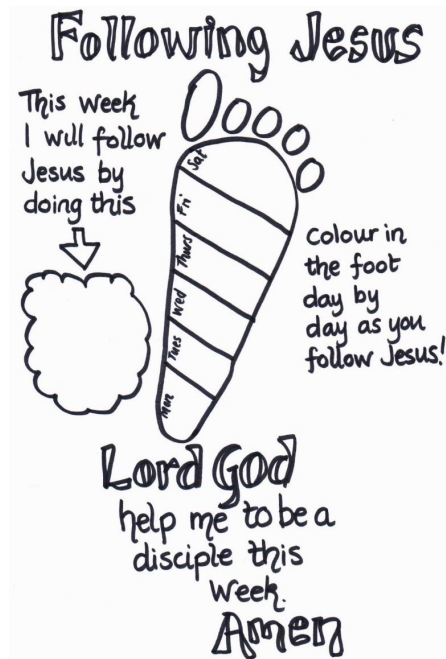 Following Jesus
This week
I will follow
Jesus by
doing this
Sat
Fri
Thurs
Wed
Tues
Mon
Colour in
the foot
day by
day as you
follow Jesus!
Lord God
help me to be a
disciple this
week.
Amen